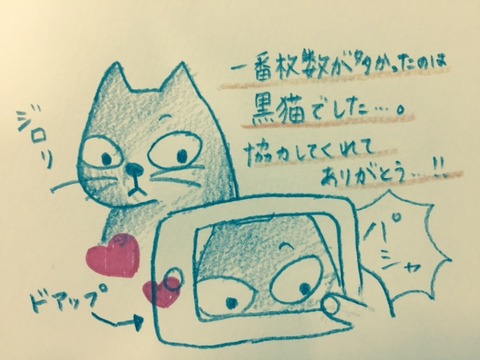 一番枚数が多かったのは
黒猫でした…。
協力してくれて
ありがとう…!!
ジロリ
パシャ
ドアップ